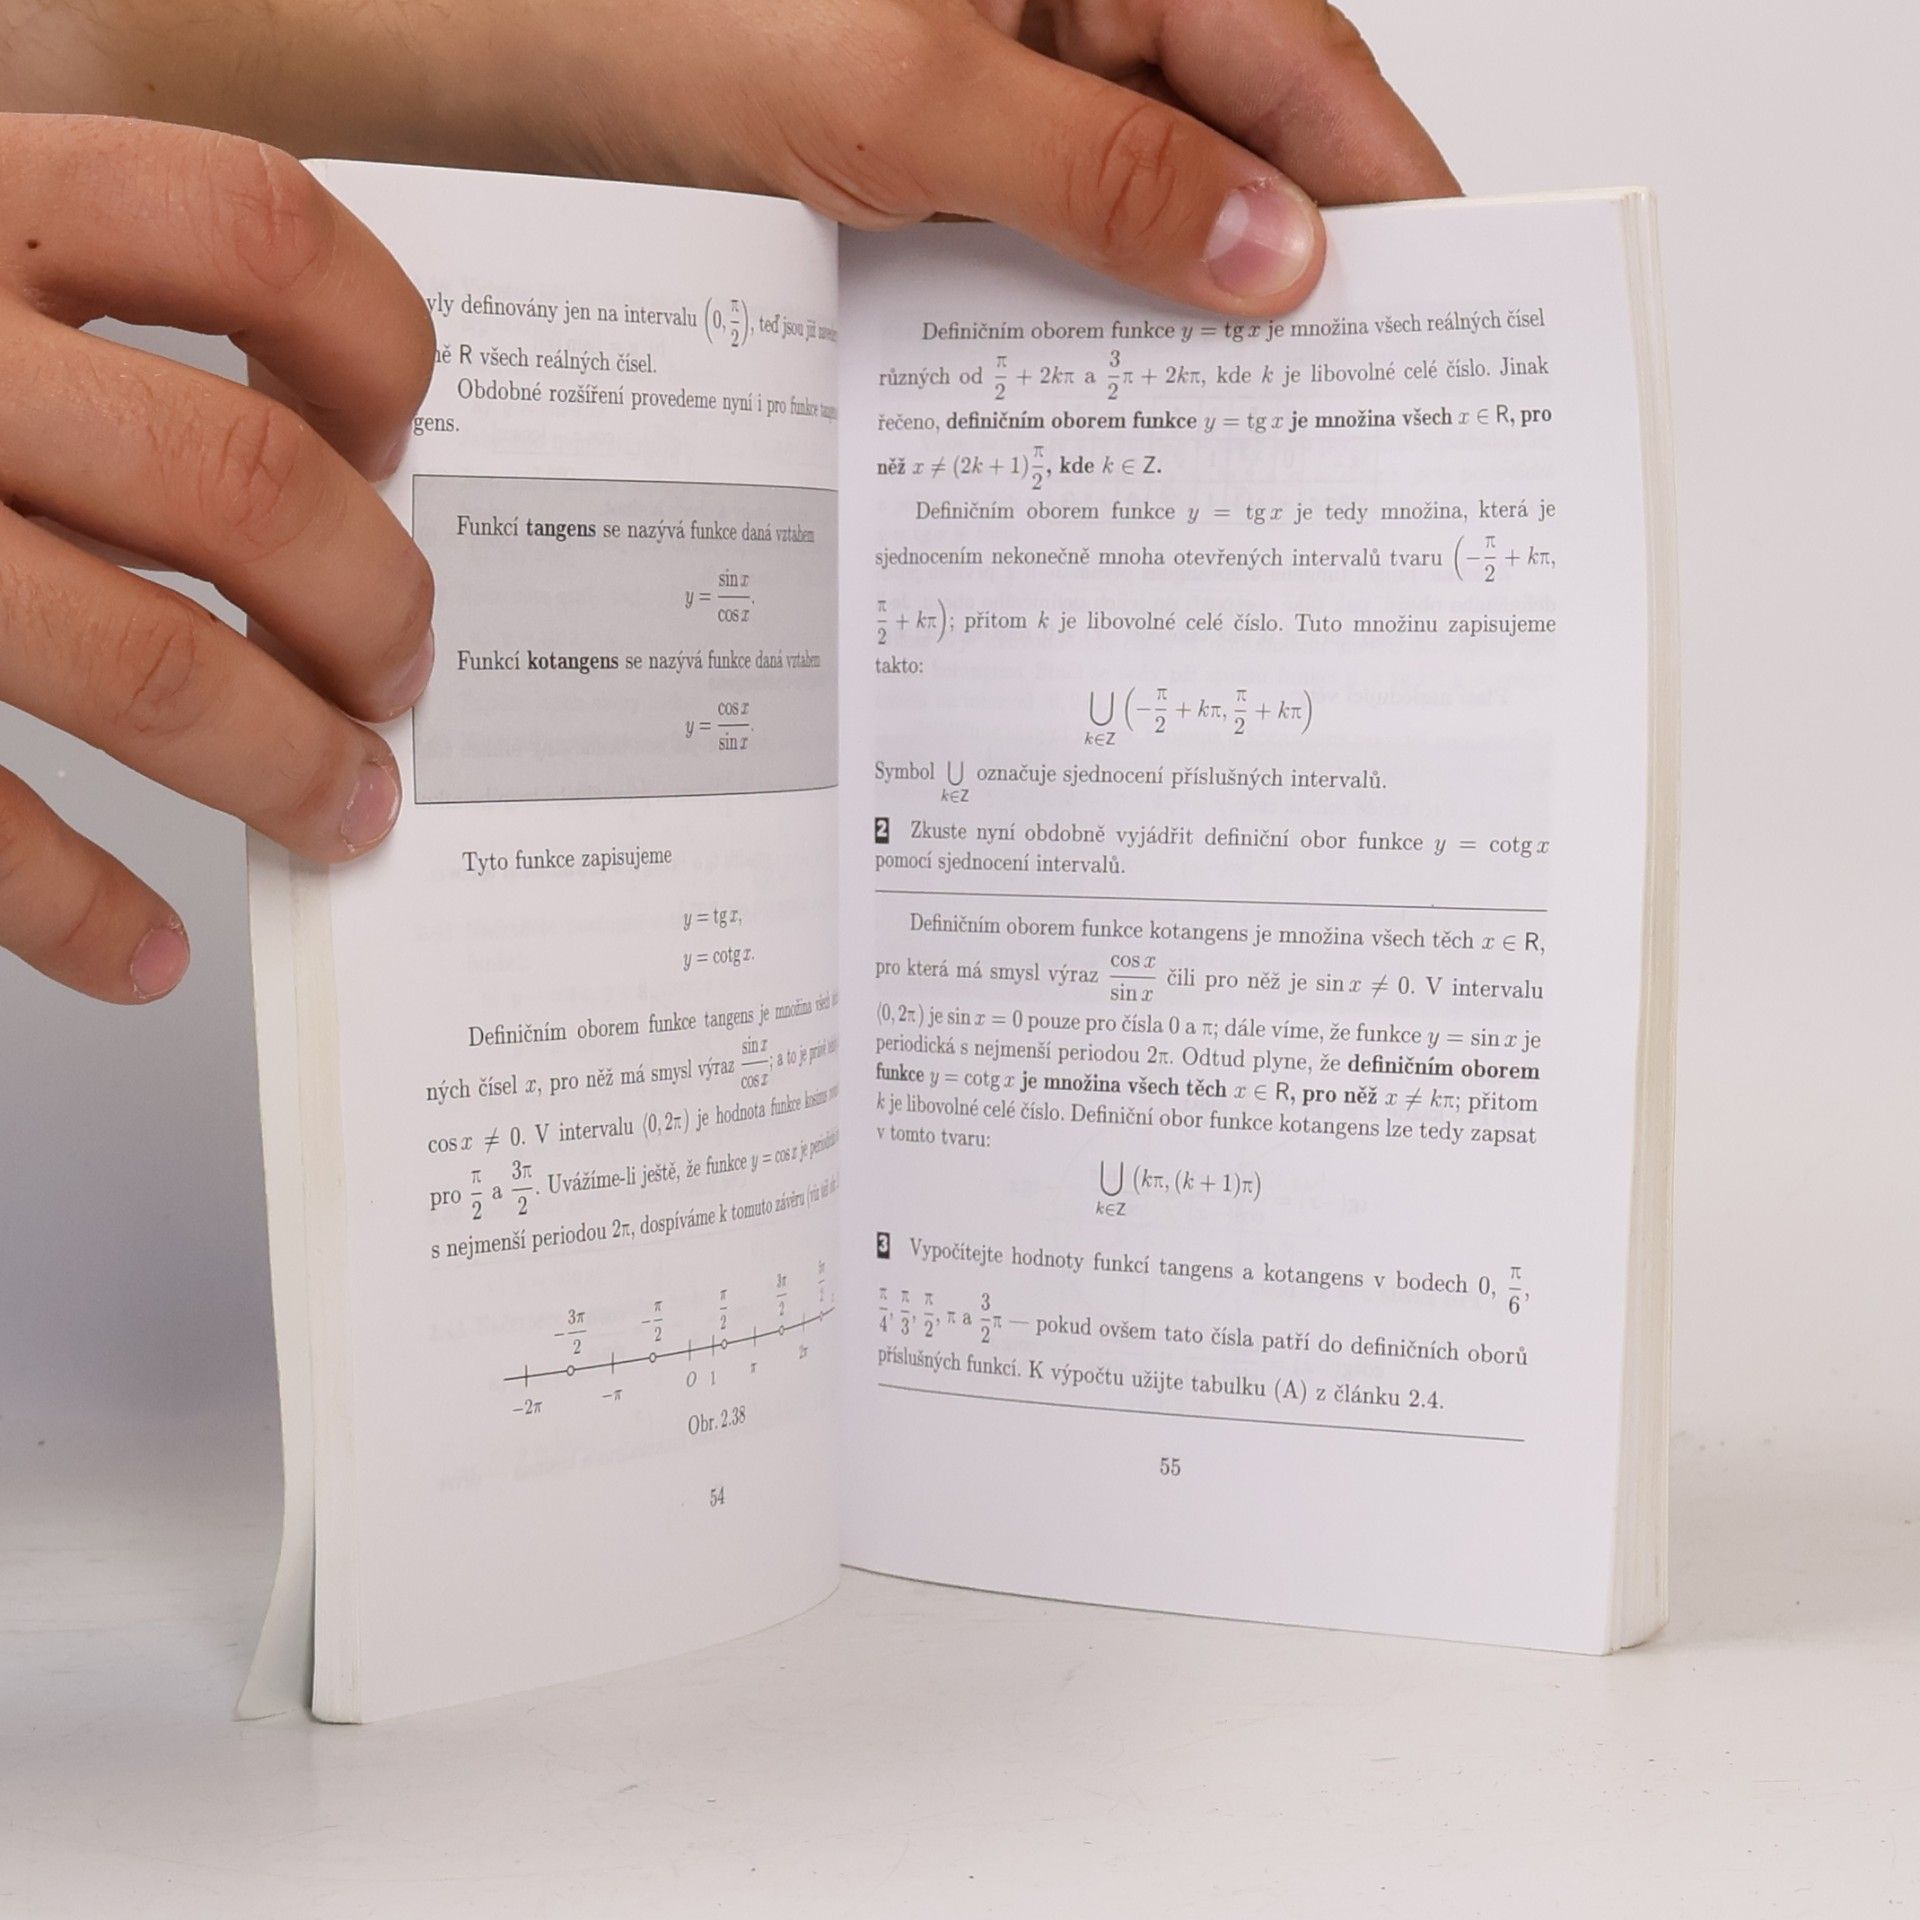 yly definovány jen na intervalu (0, π/2), teď jsou již
ně R všech reálných čísel.
Obdobné rozšíření provedeme nyní i pro funkce
gens.
Funkcí tangens se nazývá funkce daná vztahem
y = sin x / cos x.
Funkcí kotangens se nazývá funkce daná vztahem
y = cos x / sin x.
Tyto funkce zapisujeme
y = tg x,
y = cotg x.
Definičním oborem funkce tangens je množina všech
ných čísel x, pro něž má smysl výraz sin x / cos x; a to je právě
cos x ≠ 0. V intervalu ⟨0, 2π) je hodnota funkce kosinus
pro π/2 a 3π/2. Uvážíme-li ještě, že funkce y = cos x je
s nejmenší periodou 2π, dospíváme k tomuto závěru
−3π/2 −π/2 π/2 3π/2
−2π −π 0 1 π 2π
Obr. 2.38
54
Definičním oborem funkce y = tg x je množina všech reálných čísel
různých od π/2 + 2kπ a 3/2 π + 2kπ, kde k je libovolné celé číslo. Jinak
řečeno, definičním oborem funkce y = tg x je množina všech x ∈ R, pro
něž x ≠ (2k + 1) π/2, kde k ∈ Z.
Definičním oborem funkce y = tg x je tedy množina, která je
sjednocením nekonečně mnoha otevřených intervalů tvaru (−π/2 + kπ,
π/2 + kπ); přitom k je libovolné celé číslo. Tuto množinu zapisujeme
takto:
⋃ k∈Z (−π/2 + kπ, π/2 + kπ)
Symbol ⋃ k∈Z označuje sjednocení příslušných intervalů.
2 Zkuste nyní obdobně vyjádřit definiční obor funkce y = cotg x
pomocí sjednocení intervalů.
Definičním oborem funkce kotangens je množina všech těch x ∈ R,
pro která má smysl výraz cos x / sin x čili pro něž je sin x ≠ 0. V intervalu
⟨0, 2π) je sin x = 0 pouze pro čísla 0 a π; dále víme, že funkce y = sin x je
periodická s nejmenší periodou 2π. Odtud plyne, že definičním oborem
funkce y = cotg x je množina všech těch x ∈ R, pro něž x ≠ kπ; přitom
k je libovolné celé číslo. Definiční obor funkce kotangens lze tedy zapsat
v tomto tvaru:
⋃ k∈Z (kπ, (k + 1)π)
3 Vypočítejte hodnoty funkcí tangens a kotangens v bodech 0, π/6,
π/4, π/3, π/2, π a 3/2 π — pokud ovšem tato čísla patří do definičních oborů
příslušných funkcí. K výpočtu užijte tabulku (A) z článku 2.4.
55